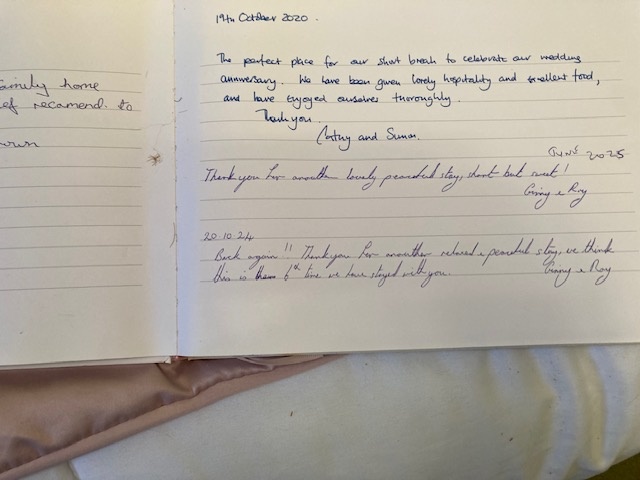 19th October 2020.
The perfect place for our short break to celebrate our wedding
anniversary. We have been given lovely hospitality and excellent food,
and have enjoyed ourselves thoroughly.
Thank you.
Cathy and
June 2025
Thank you for another lovely peaceful stay, short but sweet!
Ginny & Roy
20.10.24
Back again!! Thank you for another relaxed & peaceful stay, we think
this is 6th time we have stayed with you. Ginny & Roy
family home
recomend. to